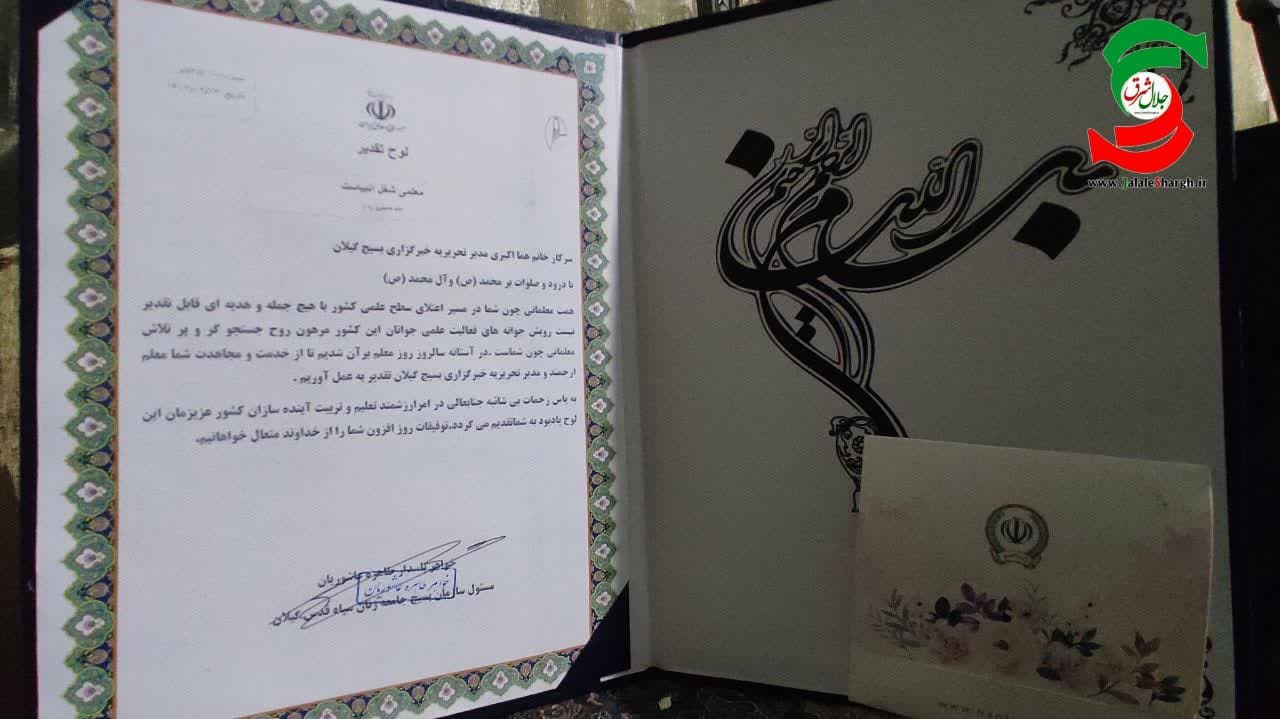 لوح تقدیر
معلمی شغل انبیاست
سرکار خانم هما اکبری مدیر تحریریه خبرگزاری بسیج گیلان
با درود و صلوات بر محمد (ص) وآل محمد (ص)
همت معلمانی چون شما در مسیر اعتلای سطح علمی کشور با هیچ جمله و هدیه ای قابل تقدیر
نیست رویش جوانه های فعالیت علمی جوانان این کشور مرهون روح جستجو گر و پر تلاش
معلمانی چون شماست .در آستانه سالروز روز معلم برآن شدیم تا از خدمت و مجاهدت شما معلم
ارجمند و مدیر تحریریه خبرگزاری بسیج گیلان تقدیر به عمل آوریم .
به پاس زحمات بی شائبه جنابعالی در امرارزشمند تعلیم و تربیت آینده سازان کشور عزیزمان این
لوح یادبود به شماتقدیم می گردد.توفیقات روز افزون شما را از خداوند متعال خواهانیم.
خواهر پاسدار طاهره عاشوریان
خواهر طاهره عاشوریان
مسئول سازمان بسیج جامعه زنان سپاه قدس گیلان
بسم الله الرحمن الرحیم
جلال شرق
www.JalaleShargh.ir